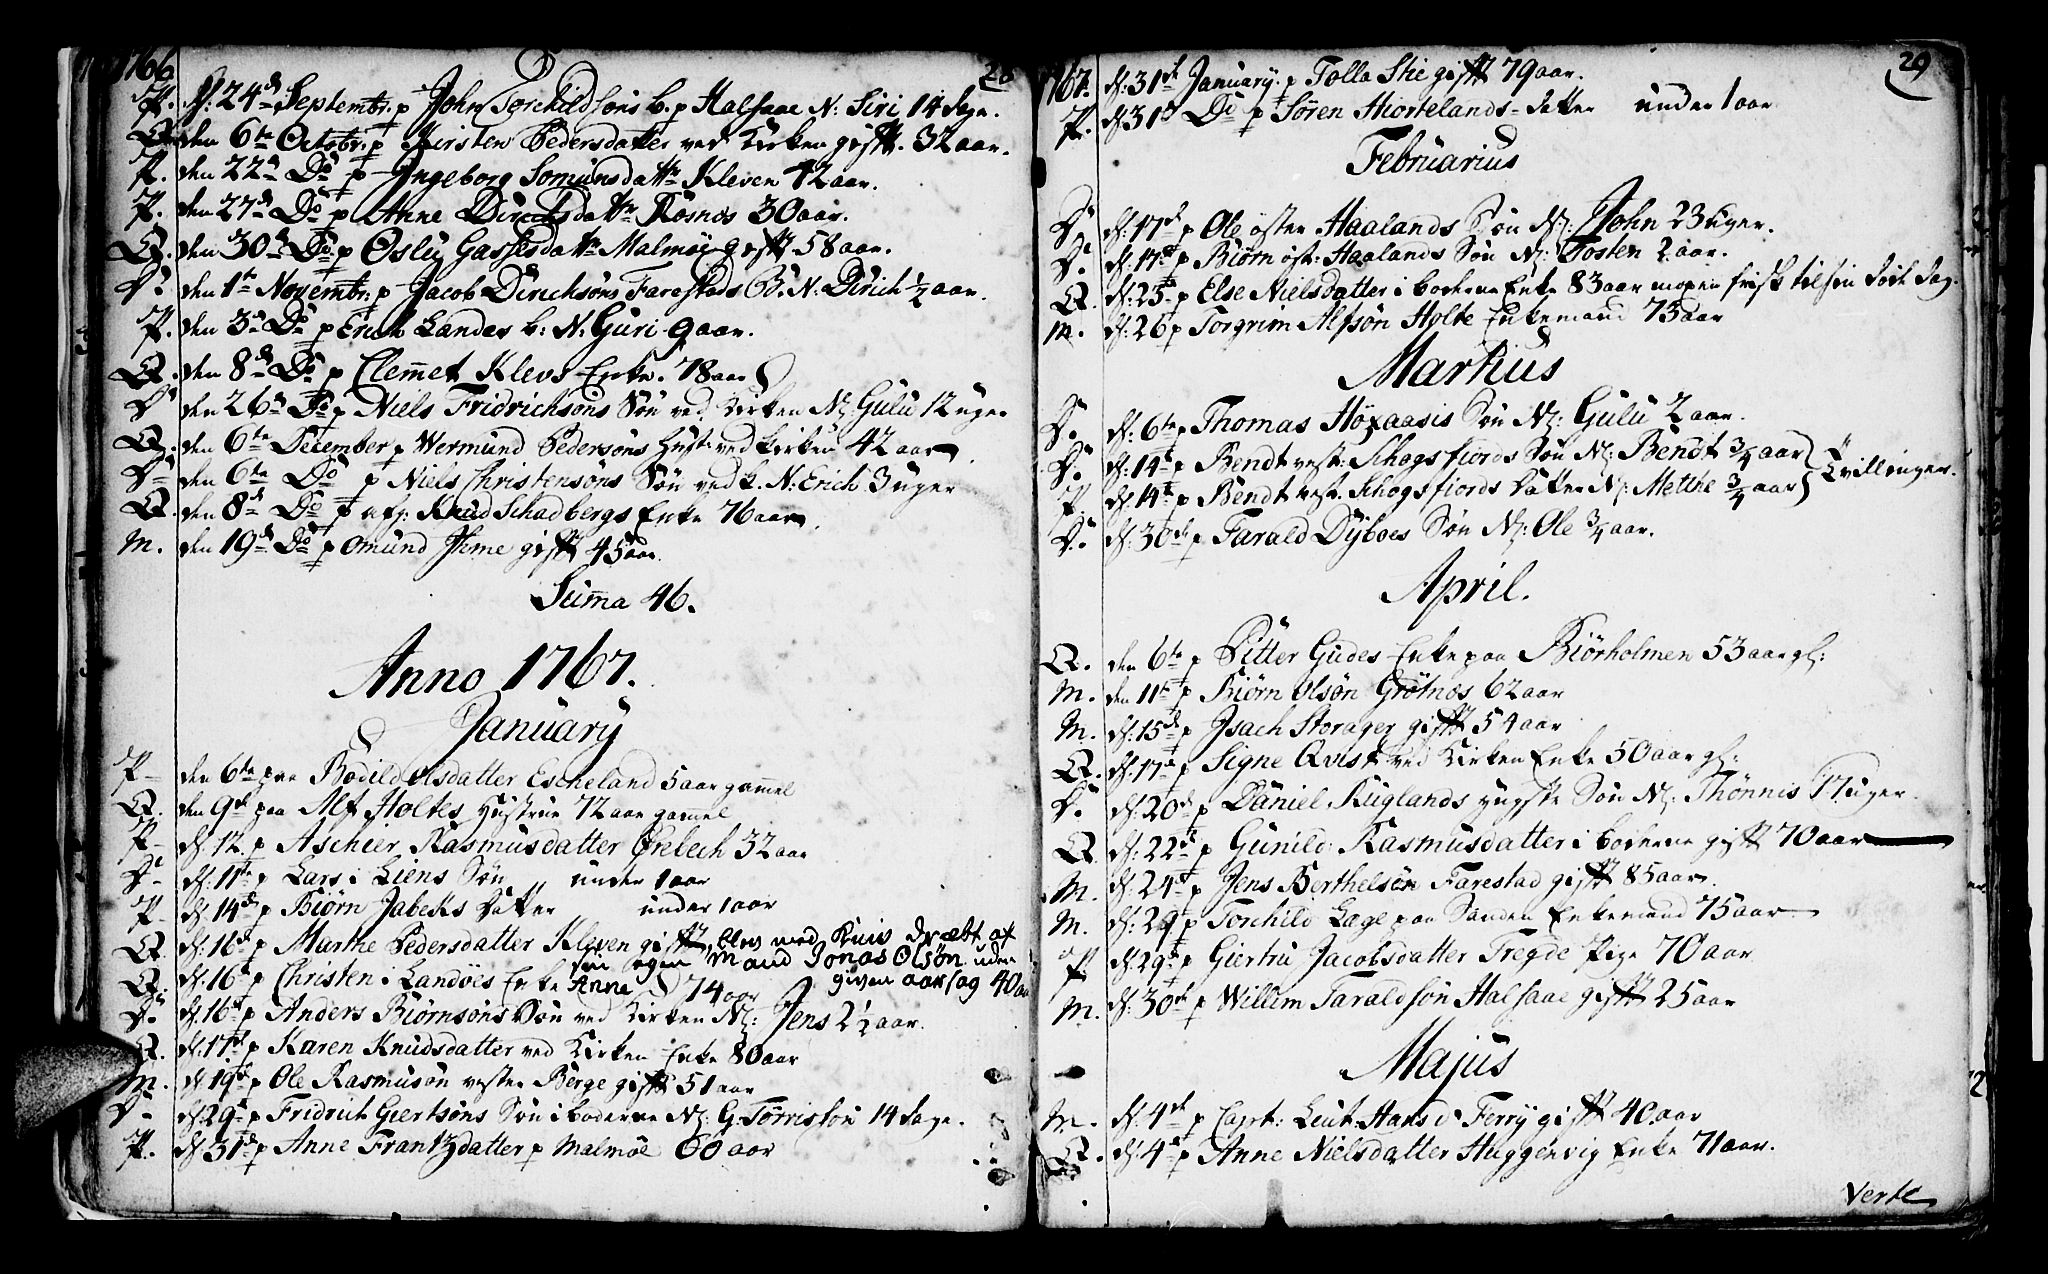 1766
28
P. d: 24de Septembr: p John Torchildsøns b. p Halsaae N: Siri 14 dage.
Q. den 6te Octobr: p Kirsten Pedersdatter ved Kirken gift. 32 aar.
P. den 22de Do p Ingeborg Somundsdattr Kleven 12 aar.
P. den 27de Do p Anne Dirichsdattr Rosnæs 30 aar.
Q. den 30de Do p Oslu Gassesdattr Malmøe gift 58 aar.
D. den 1te Novembr: p Jacob Dirichsøns Farestads B. N: Dirich ½ aar.
P. den 3de Do p Erich Landøes b: N: Guri 9 aar.
Q. den 8de Do p Clemmet Klevs Enke. 78 aar
D. den 26de Do p Niels Fridrichsøns Søn ved Kirken N: Gulu 12 uger
Q. den 6te December p Wermund Pedersøns Hust: ved Kirken 42 aar
D. den 6te Do p Niels Christensøns Søn ved k. N: Erich 3 uger
Q. den 8de Do p afg: Knud Schadbergs Enke 76 aar.
M. den 19de Do p Omund Jhme gift 45 aar.
Summa 46.
Anno 1767.
January
P. den 6te paa Bodild Olsdatter Escheland 5 aar gammel
Q. den 9de paa Alf Holtes Hustrue 72 aar gammel
P. d: 12. p Aschier Rasmusdatter Ørebech 32 aar
D. d: 11te p Lars i Liens Søn under 1 aar
P. d: 14de p Biørn Jabeks datter under 1 aar
Q. d: 16de p Marthe Pedersdatter Kleven gift, blev med Kniv dræbt af
sin egen Mand Jonas Olsøn uden
given aarsag 40 aar
Q. d: 16de p Christen i Landøes Enke Anne 74 aar
D. d: 16de p Anders Biørnsøns Søn ved Kirken N: Jens 2½ aar.
Q. d: 17de p Karen Knudsdatter ved Kirken Enke 80 aar
M. d: 19de p Ole Rasmusøn vester Berge gift 51 aar
D. d: 29de p Fridrich Giertsøns Søn i boderne N: G: Torrisføn 14 dage.
P. d: 31de p Anne Frantzdatter p Malmøe 60 aar
1767.
29
d: 31te January: p Tolla Skie gift 79 aar.
P. d: 31de Do p Søren Hiortelands datter under 1 aar
Februarius
D. d: 17de p Ole øster Haalands Søn N: John 23 uger.
D. d: 17de p Biørn øst: Haalands Søn N: Tosten 2 aar.
Q. d: 25de p Else Nielsdatter i boderne Enke 83 aar frisk til sin døde dag.
M. d: 26 p Torgrim Alfsøn Holte Enkemand 73 aar
Martius
D. d: 6te p Thomas Høyaasis Søn N: Gulu 2 aar.
D. d: 14de p Bendt vest: Schogsfiords Søn N: Bendt ¾ aar
P. d: 14de p Bendt vest: Schogsfiords datter N: Mette ¾ aar } Tvillinger.
D. d: 30de p Tarald Dyboes Søn N: Ole ¾ aar.
April.
Q. den 6te p Pitter Gudes Enke paa Biørholmen 53 aar gl:
M. den 11te p Biørn Olsøn Grøtnæs 62 aar
M. d: 15de p Isach Storager gift 54 aar
Q. d: 17de p Signe Qvist ved Kirken Enke 50 aar gl:
D. d: 20de p Daniel Kuglands yngste Søn N: Thønnis 17 uger.
Q. d: 22de p Gunild Rasmusdatter i boderne gift 70 aar
M. d: 24de p Jens Berthelsøn Farestad gift 85 aar.
M. d: 29 p Torchild Lage paa Sanden Enkemand 75 aar
P. d: 29de p Giertru Jacobsdatter Tregde Pige 70 aar
M. d: 30te p Willim Taraldsøn Halsaae gift 25 aar
Majus
M. d: 4de p Capt: Leut: Hans d: Ferry gift 40 aar
Q. d: 4de p Anne Nielsdatter Huggenvig Enke 71 aar.
Verte